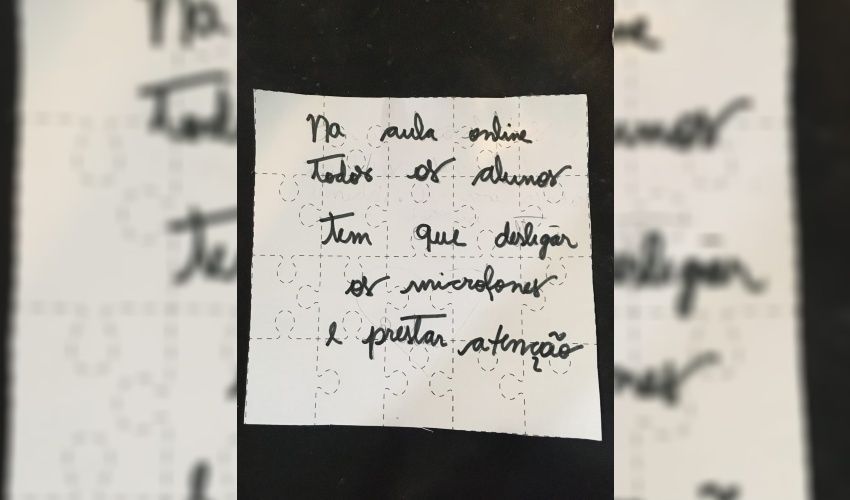 Na aula online
Todos os alunos
tem que desligar
os microfones
e prestar atenção